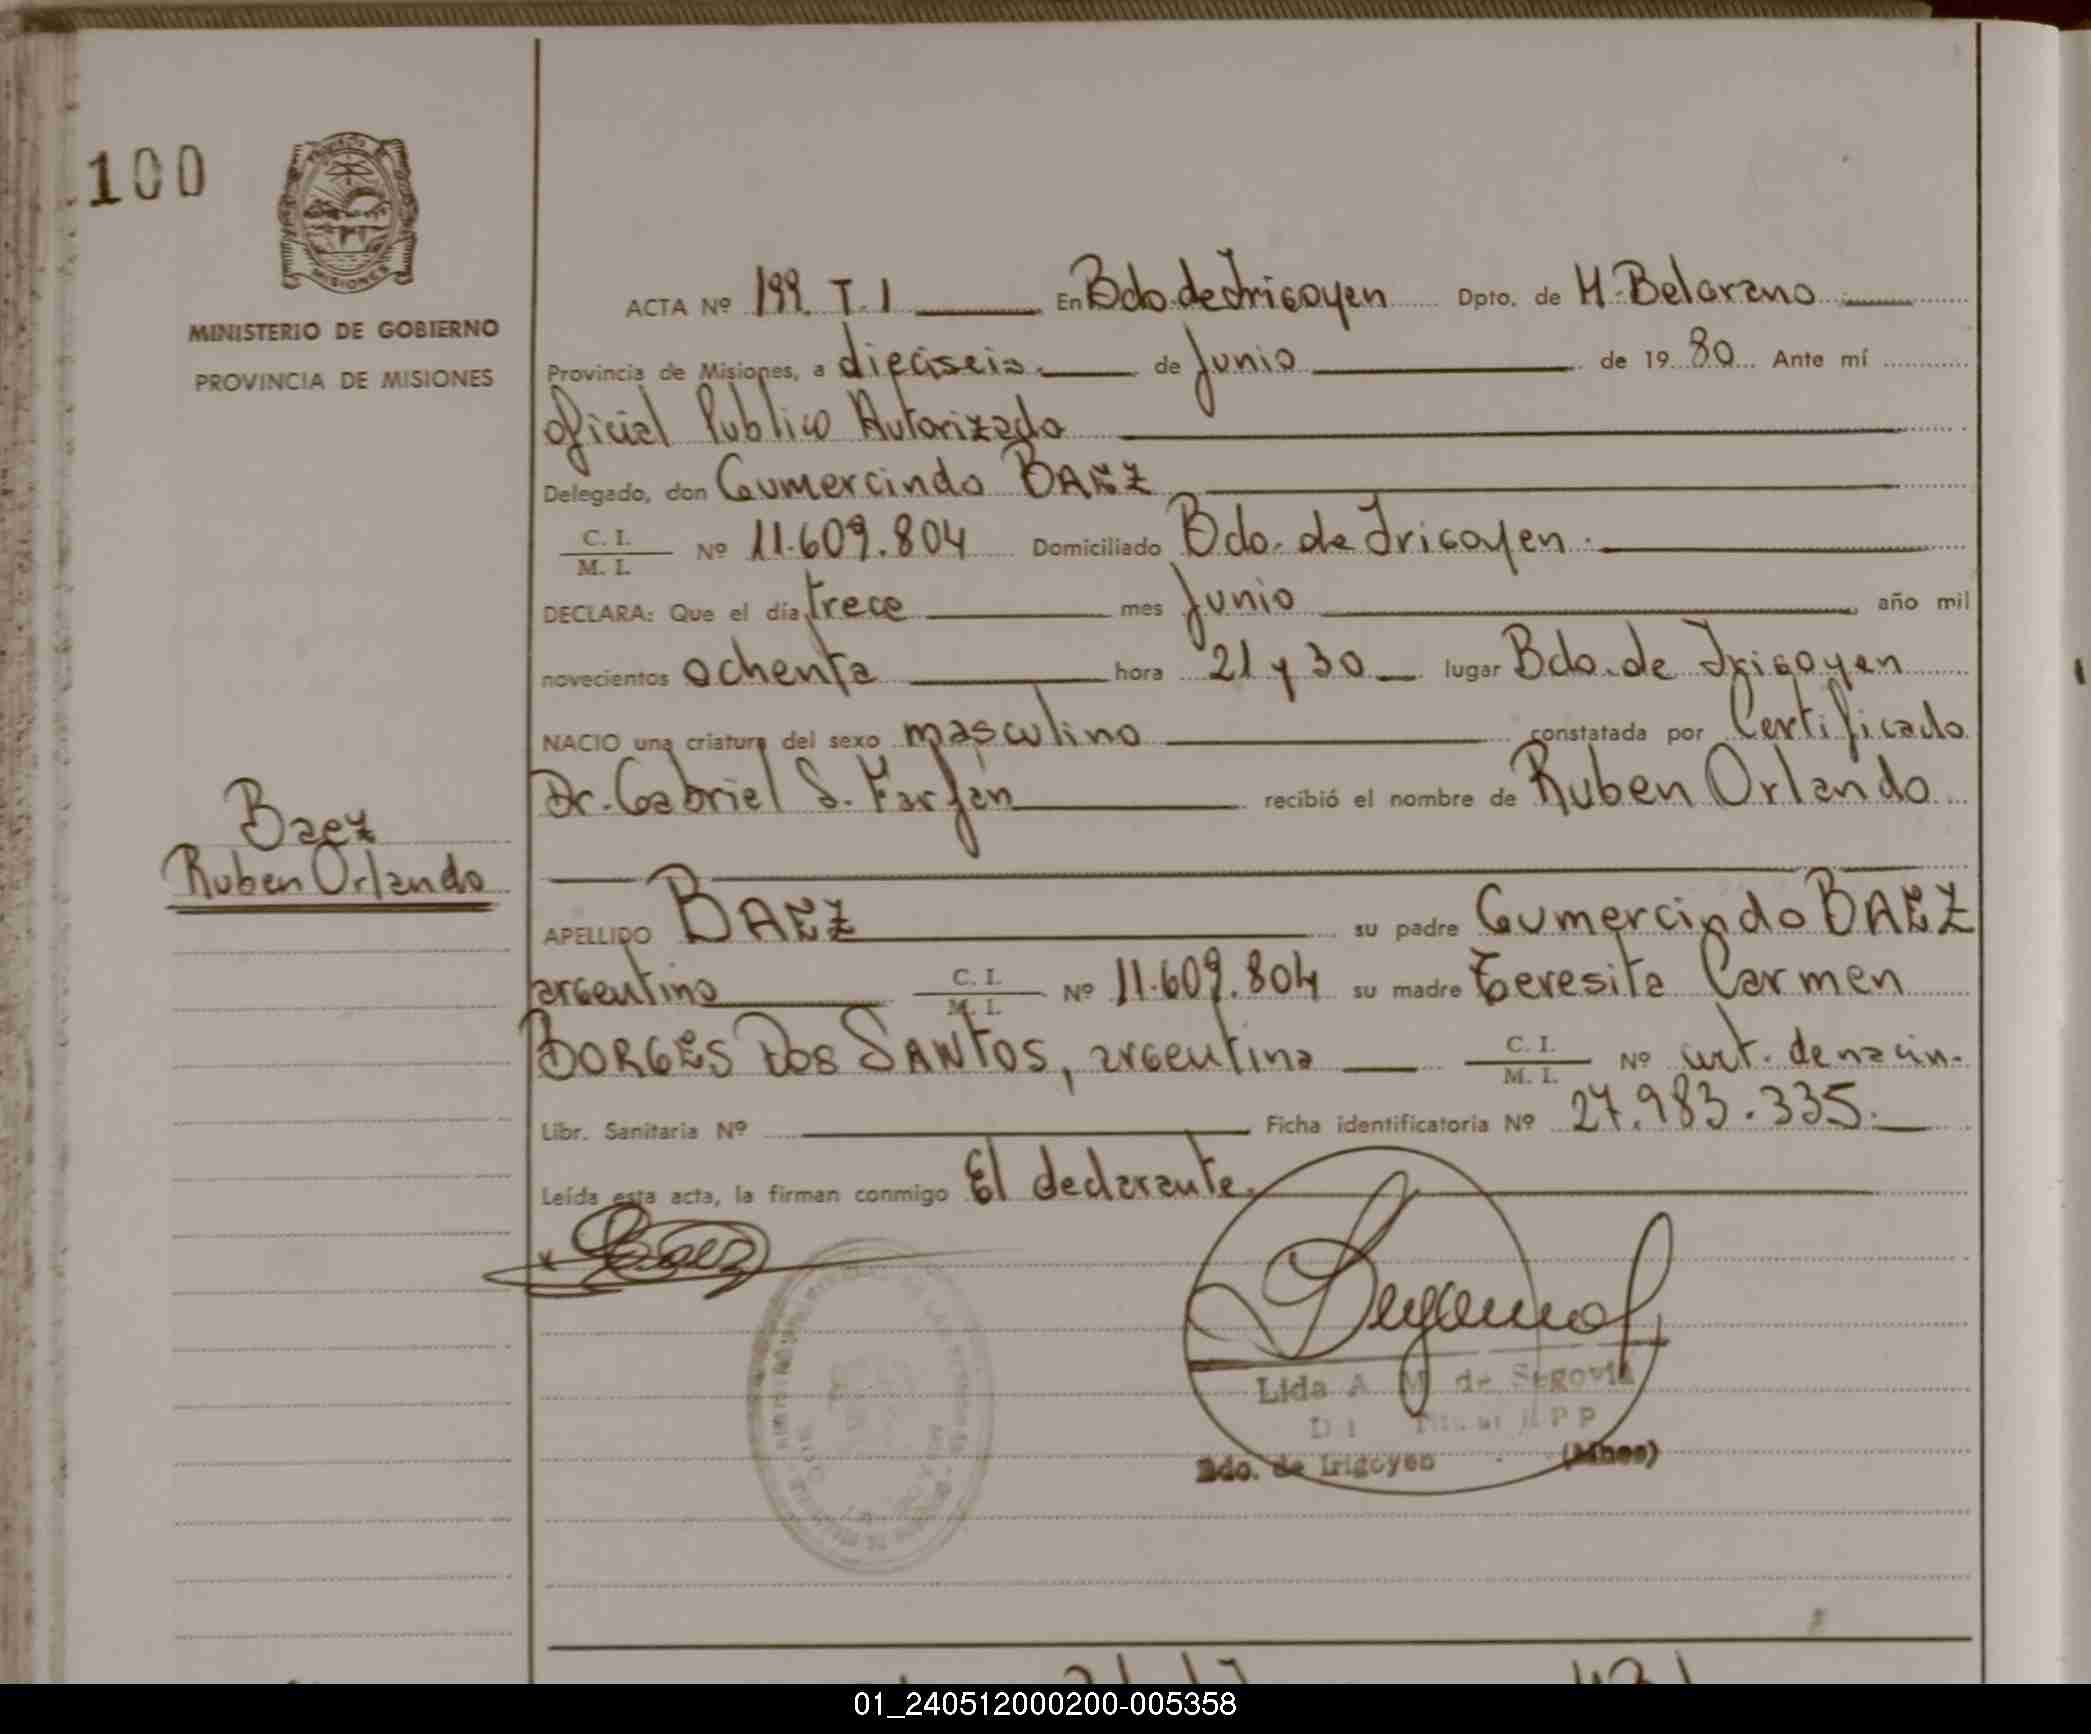 100
MISIONES
MINISTERIO DE GOBIERNO
PROVINCIA DE MISIONES
Baez
Ruben Orlando
ACTA Nº 199. T. 1 En Bdo. de Irigoyen Dpto. de M. Belgrano
Provincia de Misiones, a dieciseis de Junio de 19 80 Ante mí
Oficial Publico Autorizado
Delegado, don Gumercindo BAEZ
C. I. / M. I. Nº 11.609.804 Domiciliado Bdo. de Irigoyen
DECLARA: Que el día trece mes Junio año mil
novecientos ochenta hora 21 y 30 lugar Bdo. de Irigoyen
NACIO una criatura del sexo masculino constatada por Certificado
Dr. Gabriel S. Farfán recibió el nombre de Ruben Orlando
APELLIDO BAEZ su padre Gumercindo BAEZ
argentino C. I. / M. I. Nº 11.609.804 su madre Teresita Carmen
BORGES DOS SANTOS, argentina C. I. / M. I. Nº cert. de nacim.
Libr. Sanitaria Nº Ficha identificatoria Nº 27.983.335.
Leída esta acta, la firman conmigo El declarante.
Lida A. M. de Segovia
Bdo. de Irigoyen (Mnes)
01_240512000200-005358